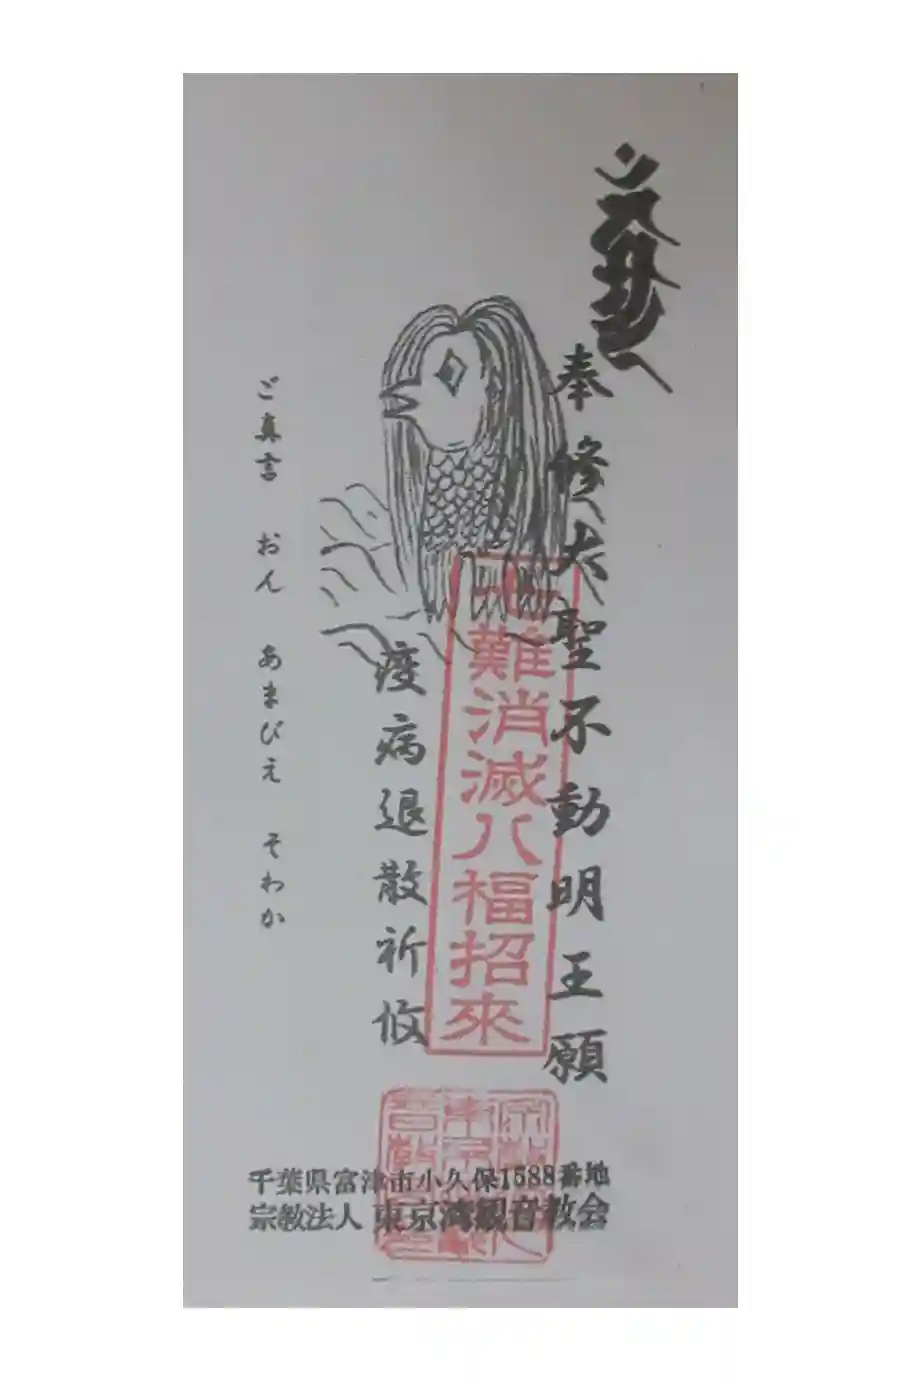 奉修大聖不動明王願
疫病退散祈攸
難消滅八福招來
ご真言 おん あまびえ そわか
千葉県富津市小久保1588番地
宗教法人 東京湾観音教会